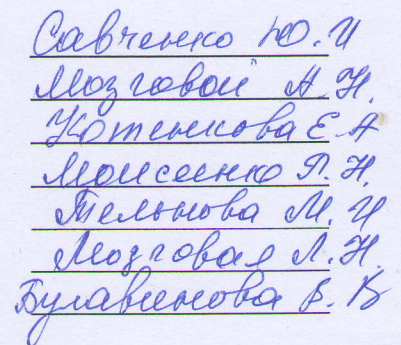 Савченко Ю. И
Мозговой А. Н.
Котенкова Е. А
Моисеенко Р. Н.
Тельнова М. И
Мозговая Л. Н.
Булавинова В. В